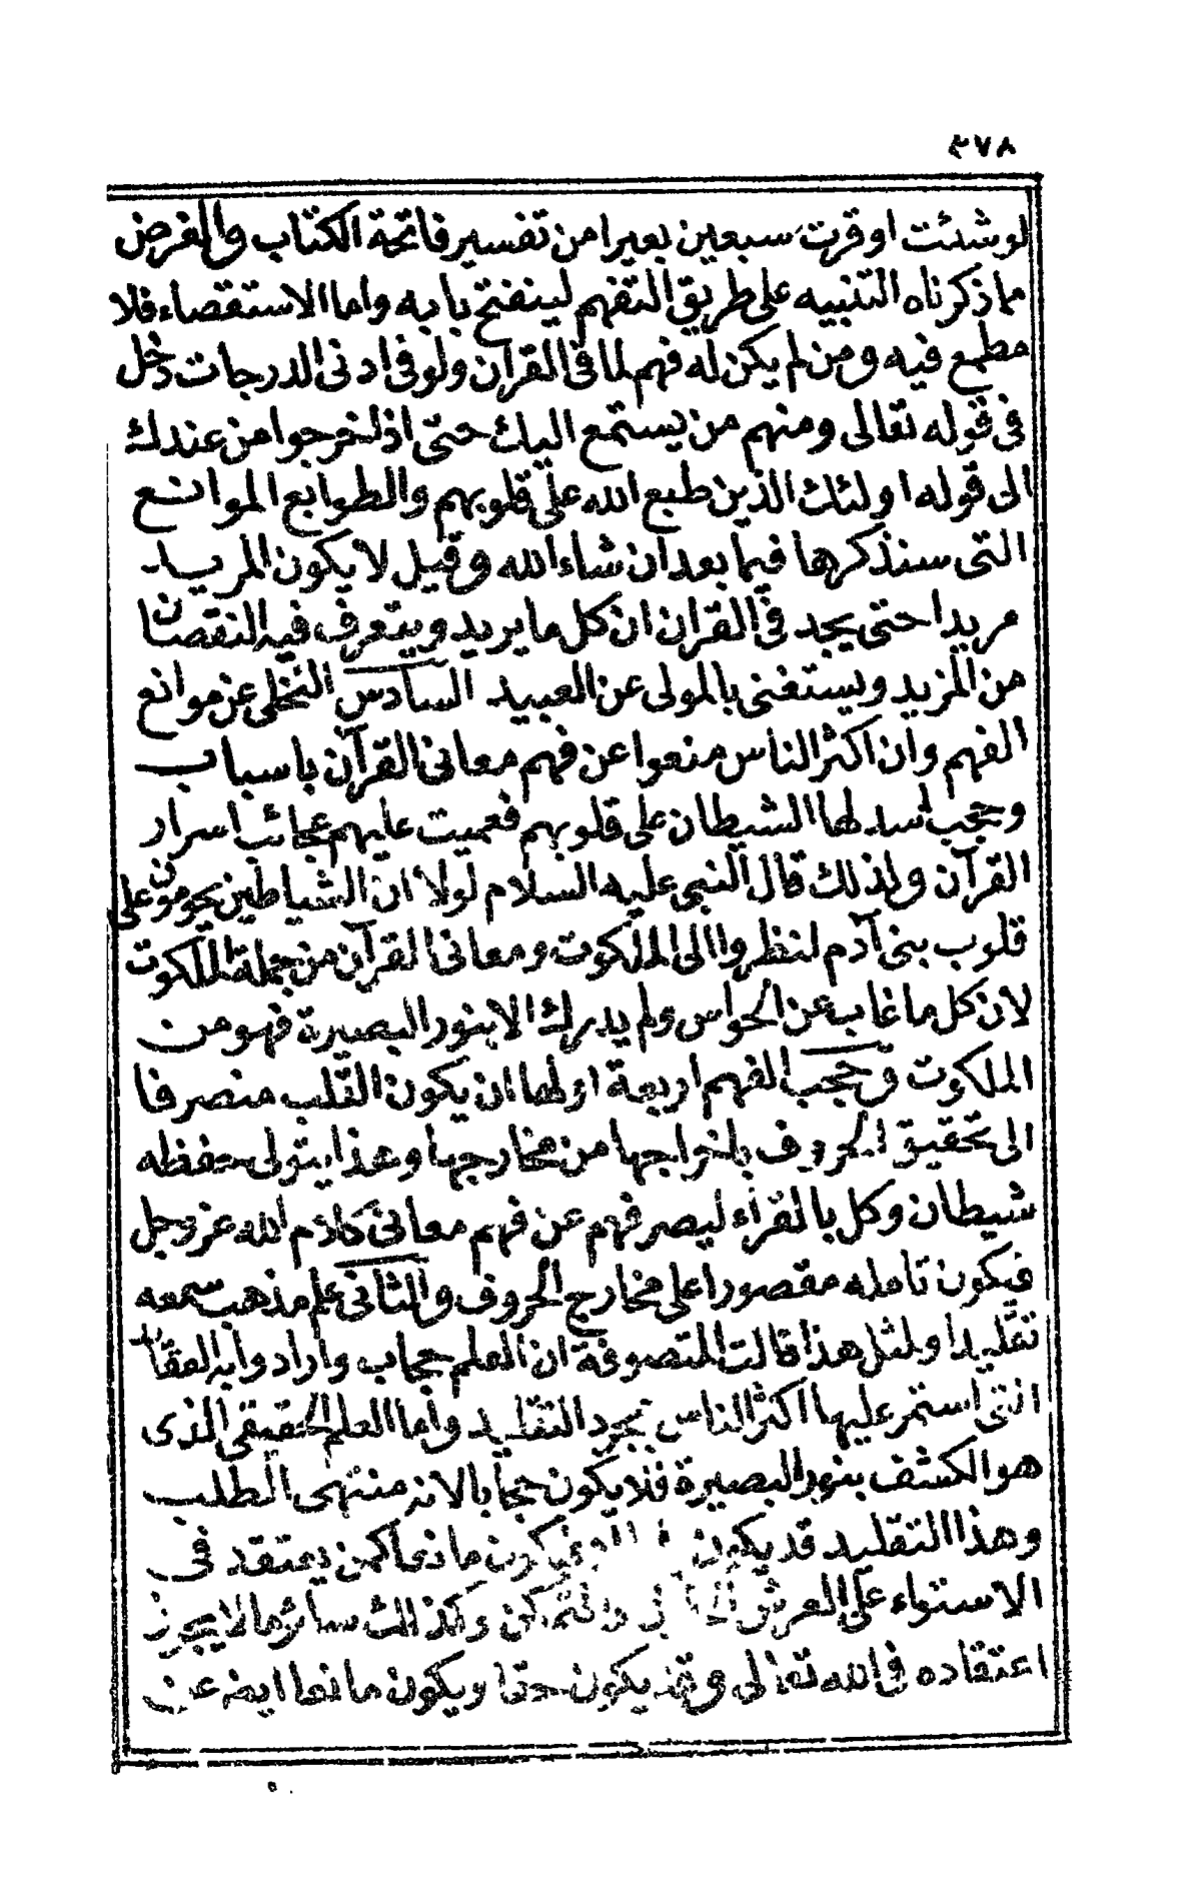 ٣٧٨
لو شئت اوقرت سبعين بعيرا من تفسير فاتحة الكتاب والغرض
مما ذكرناه التنبيه على طريق التفهم لينفتح بابه واما الاستقصاء فلا
مطمع فيه ومن لم يكن له فهم لما فى القرآن ولو فى ادنى الدرجات دخل
فى قوله تعالى ومنهم من يستمع اليك حتى اذا خرجوا من عندك
الى قوله اولئك الذين طبع الله على قلوبهم والطوابع الموانع
التى سنذكرها فيما بعد ان شاء الله وقيل لا يكون المريد
مريدا حتى يجد فى القرآن ان كل ما يريد ويتعرف فيه النقصان
من المزيد ويستغنى بالمولى عن العبيد السادس التخلى عن موانع
الفهم وان اكثر الناس منعوا عن فهم معانى القرآن باسباب
وحجب اسدلها الشيطان على قلوبهم فعميت عليهم عجائب اسرار
القرآن ولذلك قال النبى عليه السلام لولا ان الشياطين يحومون على
قلوب بنى آدم لنظروا الى الملكوت ومعانى القرآن من جملة الملكوت
لان كل ما غاب عن الحواس ولم يدرك الا بنور البصيرة فهو من
الملكوت وحجب الفهم اربعة اولها ان يكون القلب منصرفا
الى تحقيق الحروف باخراجها من مخارجها وهذا يتولى حفظه
شيطان وكل بالقراء ليصرفهم عن فهم معانى كلام الله عز وجل
فيكون تامله مقصورا على مخارج الحروف والثانى علم مذهب سمعه
تقليدا ولمثل هذا قالت المتصوفة ان العلم حجاب وارادوا به العقائد
التى استمر عليها اكثر الناس بمجرد التقليد واما العلم الحقيقى الذى
هو الكشف بنور البصيرة فلا يكون حجابا لانه منتهى الطلب
وهذا التقليد قد يكون فيكون مانعا كمن يعتقد فى
الاستواء على العرش والتمكن وكذلك سائر ما لا يجوز
اعتقاده فى الله تعالى وقد يكون حقا ويكون مانعا ايضا عن